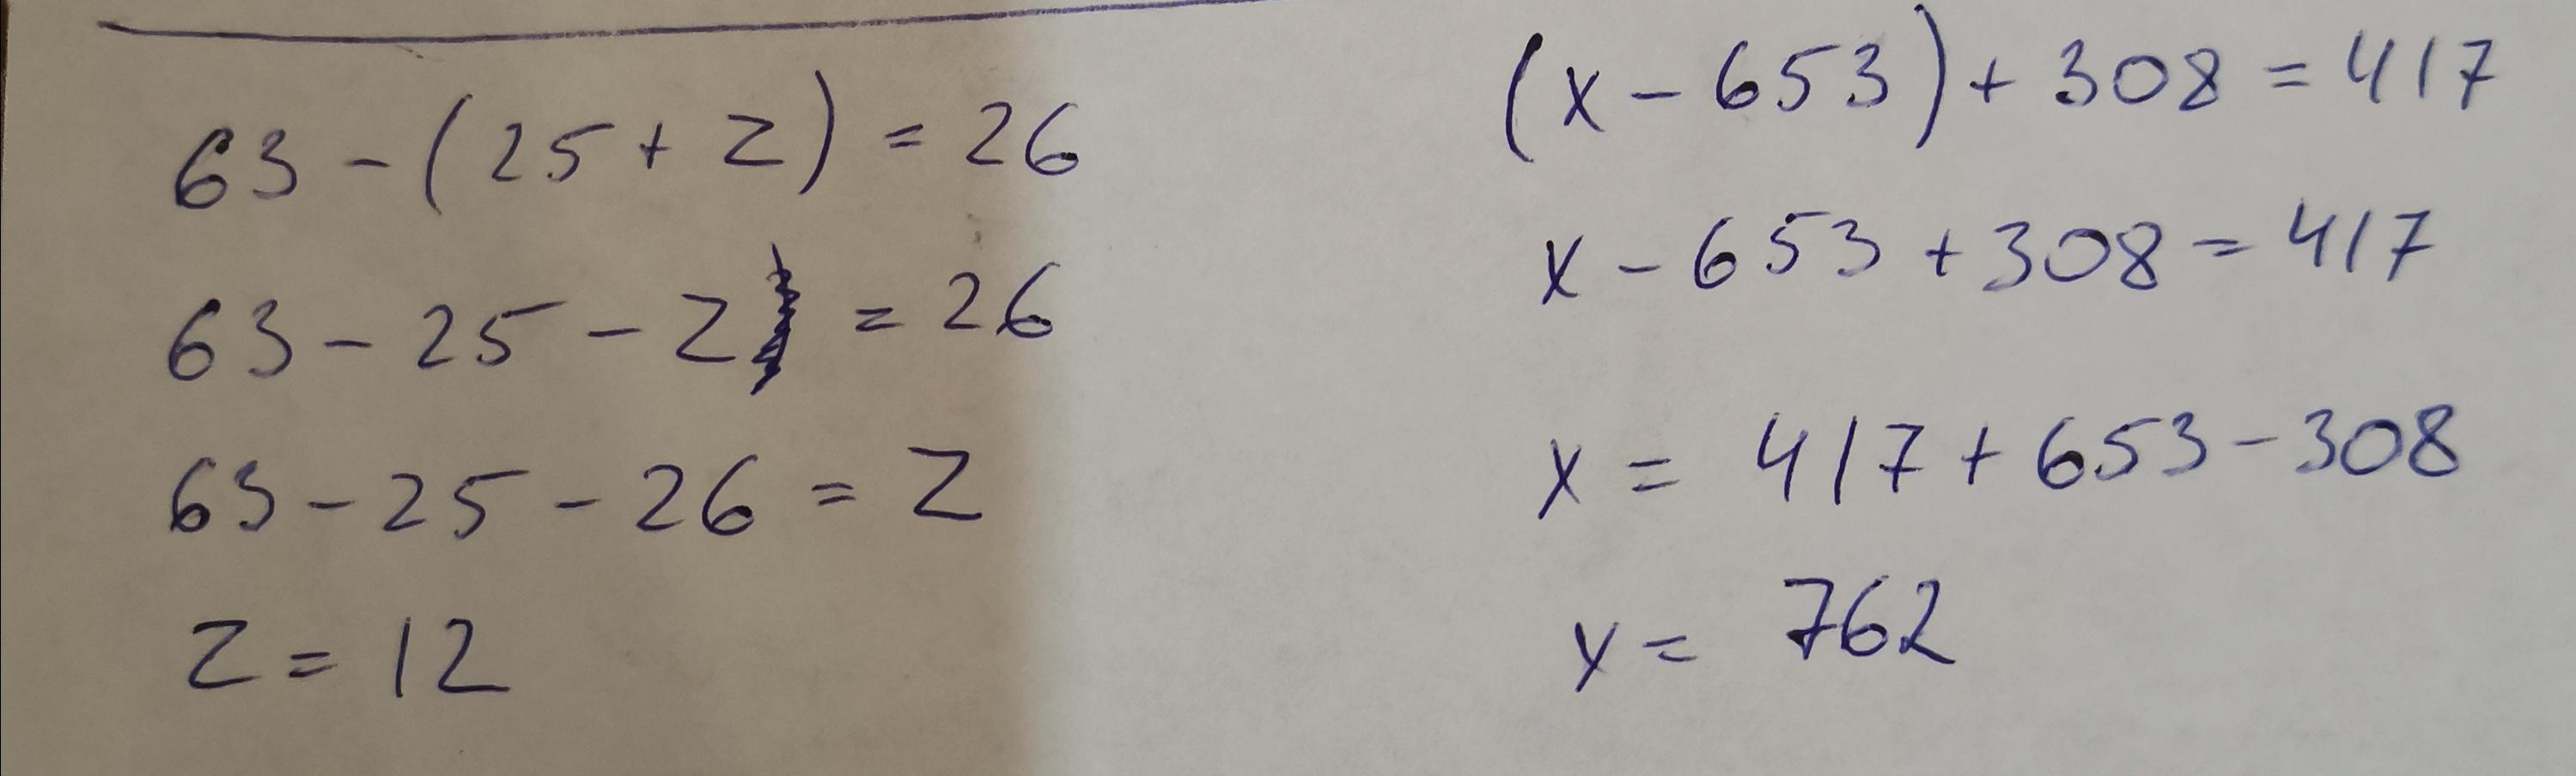 63 - (25 + z) = 26
63 - 25 - z = 26
63 - 25 - 26 = z
z = 12
(x - 653) + 308 = 417
x - 653 + 308 = 417
x = 417 + 653 - 308
x = 762